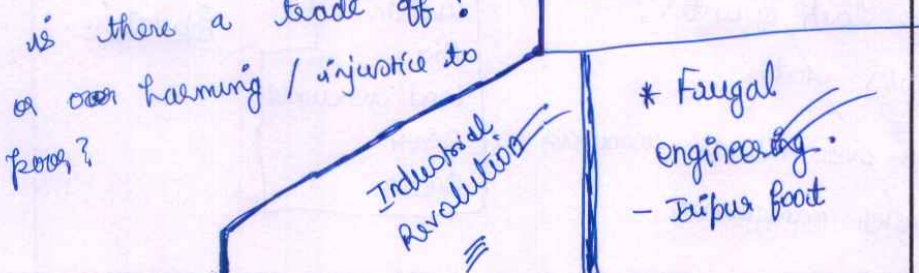 is there a trade off?
or harming / injustice to
poor?
Industrial
Revolution
* Frugal
engineering.
- Jaipur foot